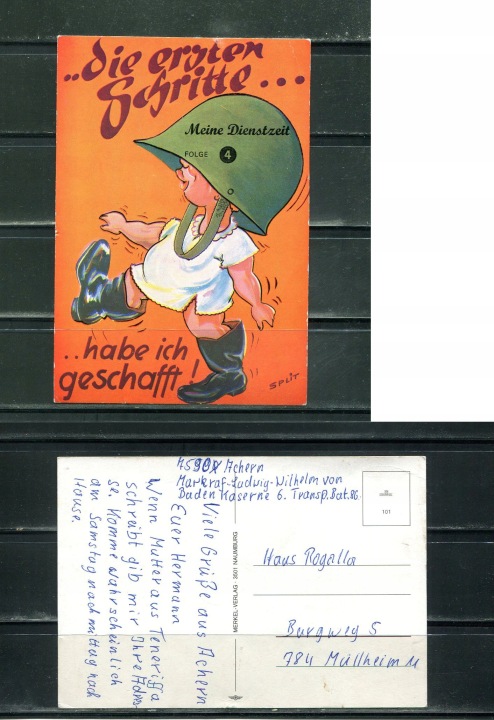 ..die ersten
Schritte...
Meine Dienstzeit
FOLGE 4
..habe ich
geschafft!
SPLIT
7590 Achern
Markraf-Ludwig-Wilhelm von
Baden Kaserne 6. Transp.Bat.86
Viele Grüße aus Achern
Euer Hermann
Wenn Mutter aus Teneriffa
schreibt gib mir Ihre Adres-
se. Komme wahrscheinlich
am Samstag nachmittag nach
Hause.
MERKEL-VERLAG · 3501 NAUMBURG
101
Haus Rogalla
Burgweg 5
784 Müllheim